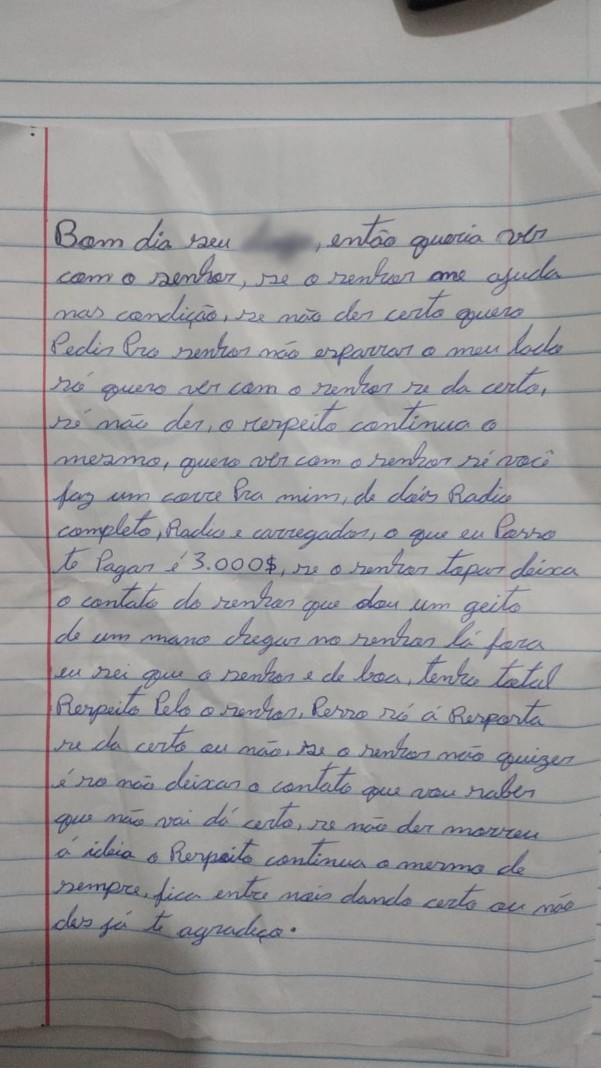 Bom dia seu , então queria ver
com o senhor, se o senhor me ajuda
nas condição, se não der certo quero
Pedir Pro senhor não esparrar o meu lado
só quero ver com o senhor se da certo,
sé não der, o respeito continua o
mesmo, quero ver com o senhor sé você
faz um corre Pra mim, de dois Radio
completo, Radio e carregador, o que eu Posso
te Pagar é 3.000$, se o senhor topar deixa
o contato do senhor que dou um geito
de um mano chegar no senhor lá fora
eu sei que o senhor e de boa, tenho total
Respeito Pelo o senhor, Peço só á Resposta
se da certo ou não, se o senhor não quizer
é so não deixar o contato que vou saber
que não vai dá certo, se não der morreu
á idéia o Respeito continua o mesmo de
sempre, fica entre nois dando certo ou não
des já te agradeço.